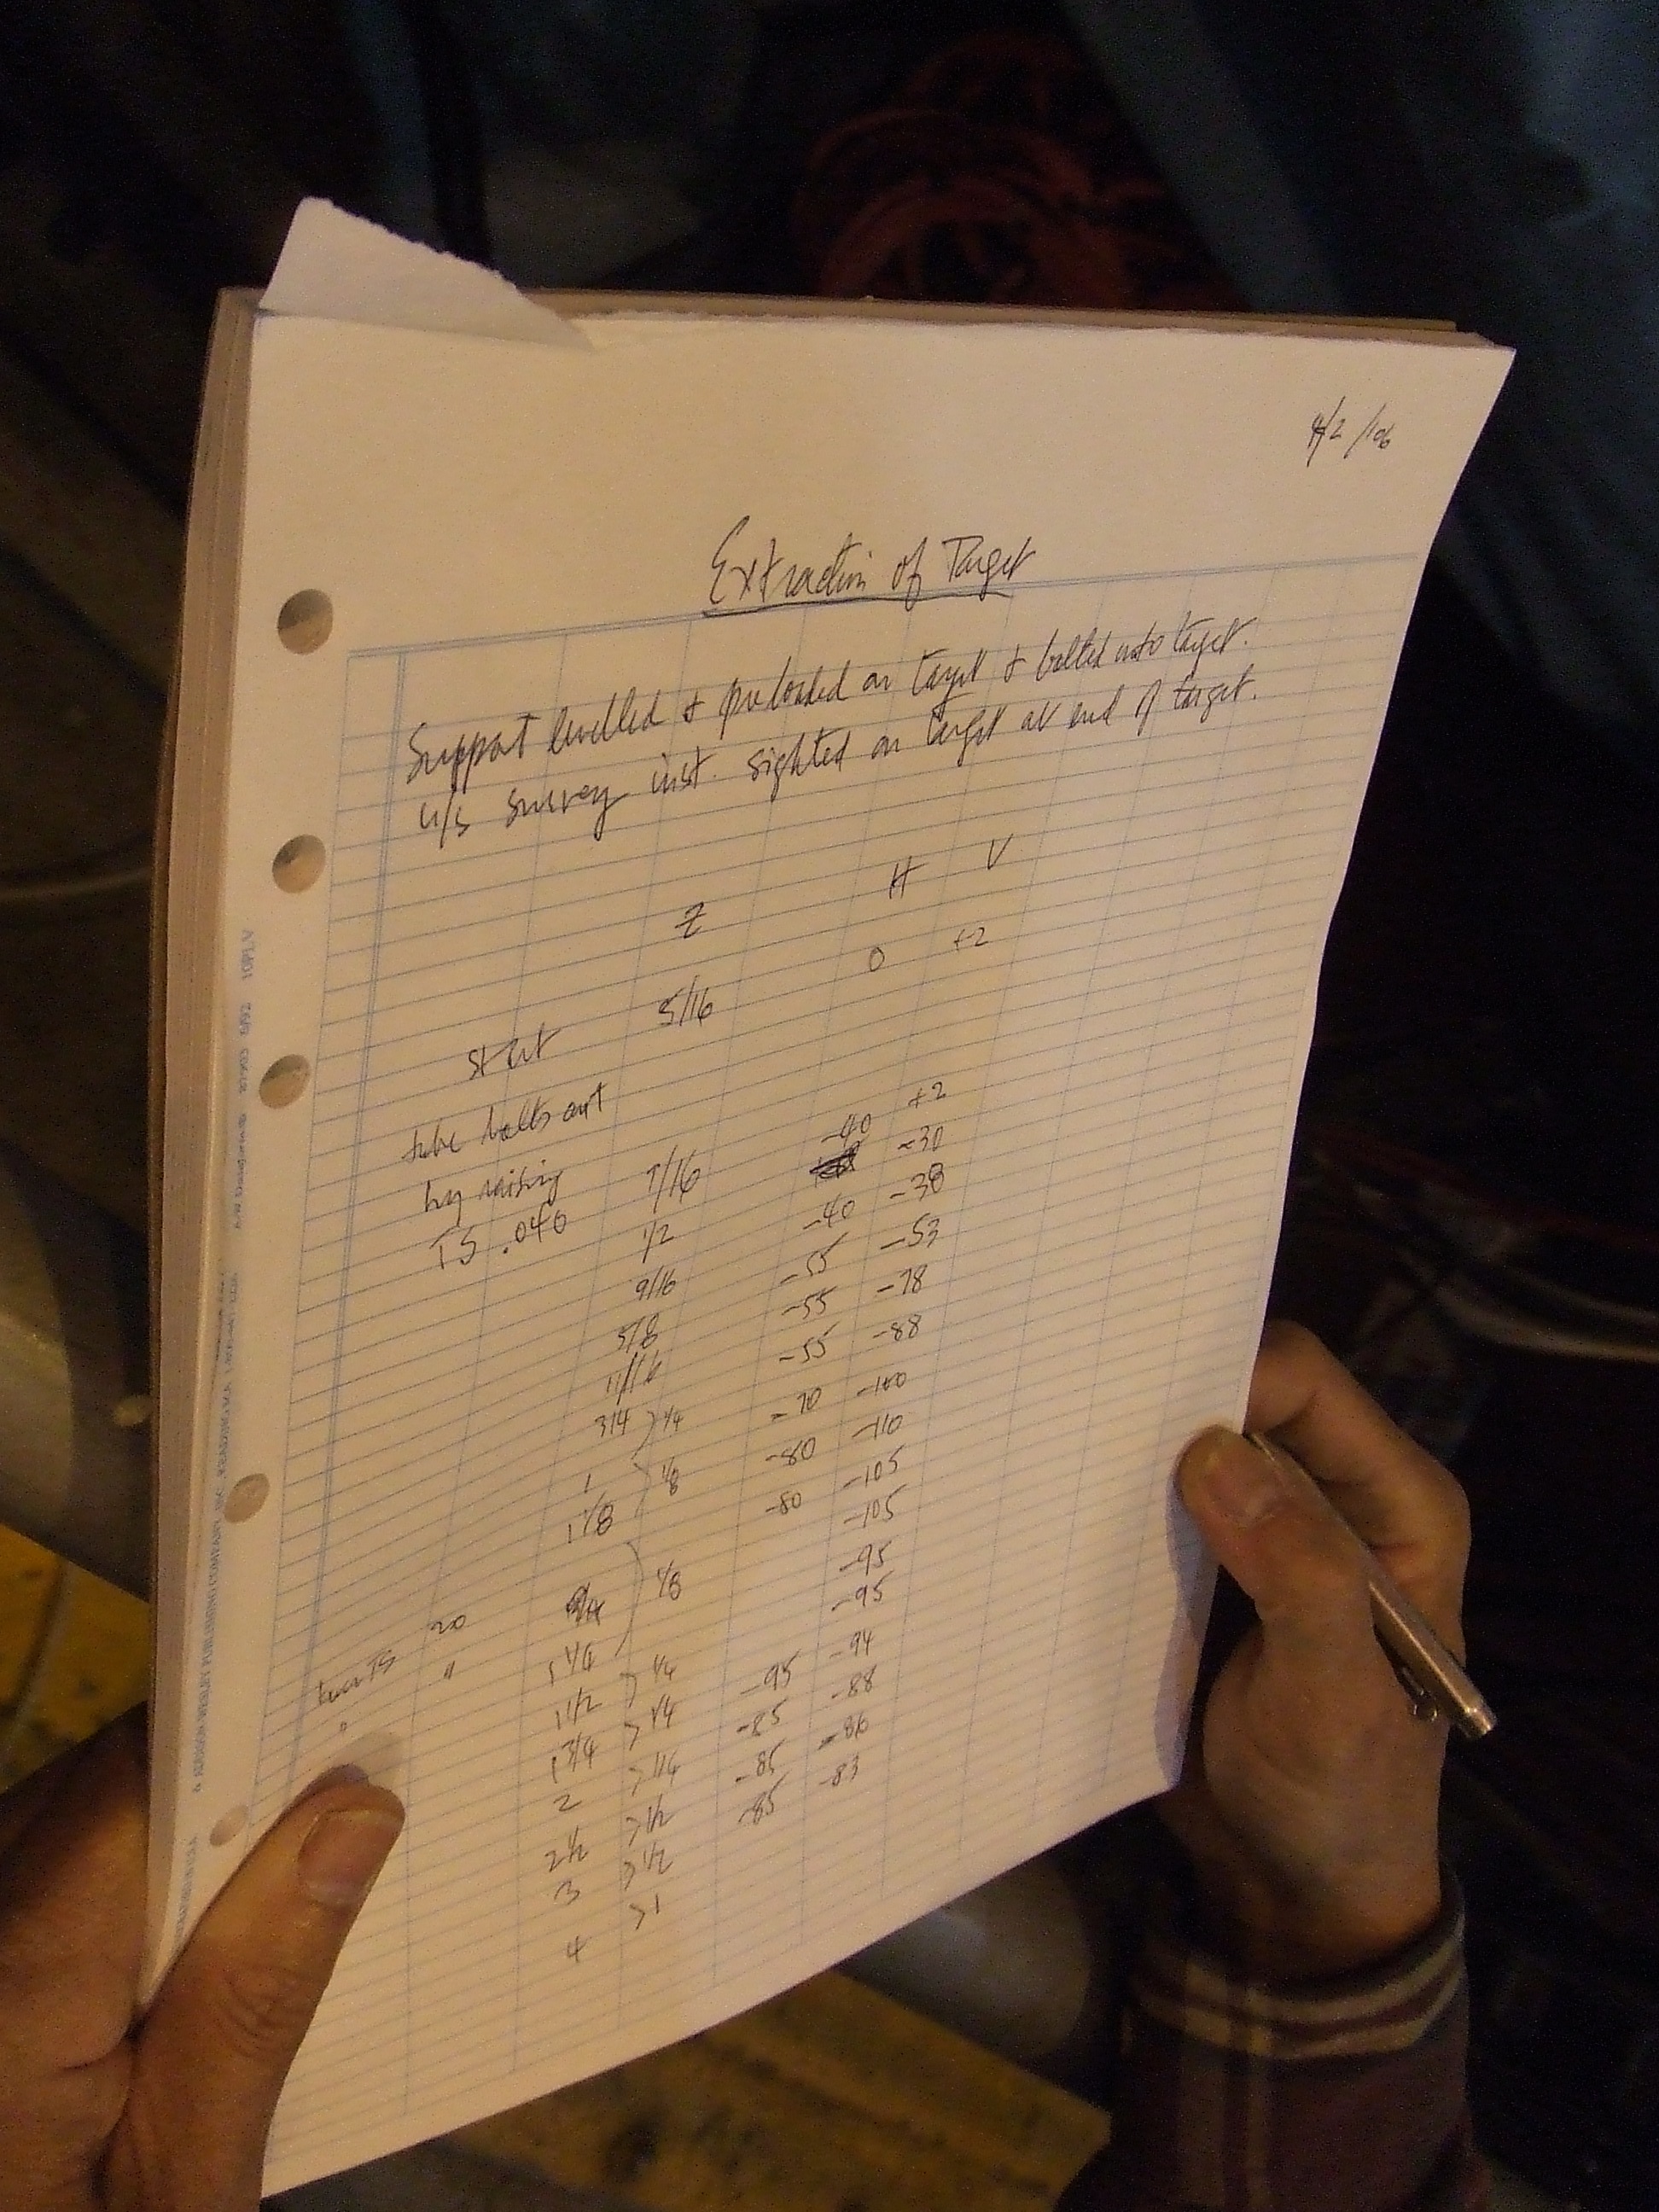 4/2/06
Extraction of Target
Support levelled & preloaded on target & bolted onto target.
u/s survey inst. sighted on target at end of target.
Z H V
start 5/16 0 +2
tube bolts out
by raising 7/16 -40 +2
TS .040 1/2 -40 -30
9/16 -55 -38
5/8 -55 -53
11/16 -55 -78
3/4 -70 -88
1/4
1 -80 -100
1/8
1 1/8 -80 -110
-105
-105
1/8
20
1 1/4 -95
1/4
1 1/2 -95
1/4
1 3/4 -95 -94
1/4
2 -85 -88
1/2
2 1/2 -85 -86
1/2
3 -85 -83
1
4